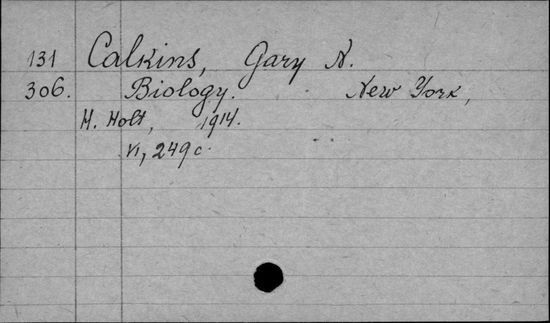 131 Calkins, Gary N.
306. Biology. New York,
H. Holt, 1914.
VI, 249 c.